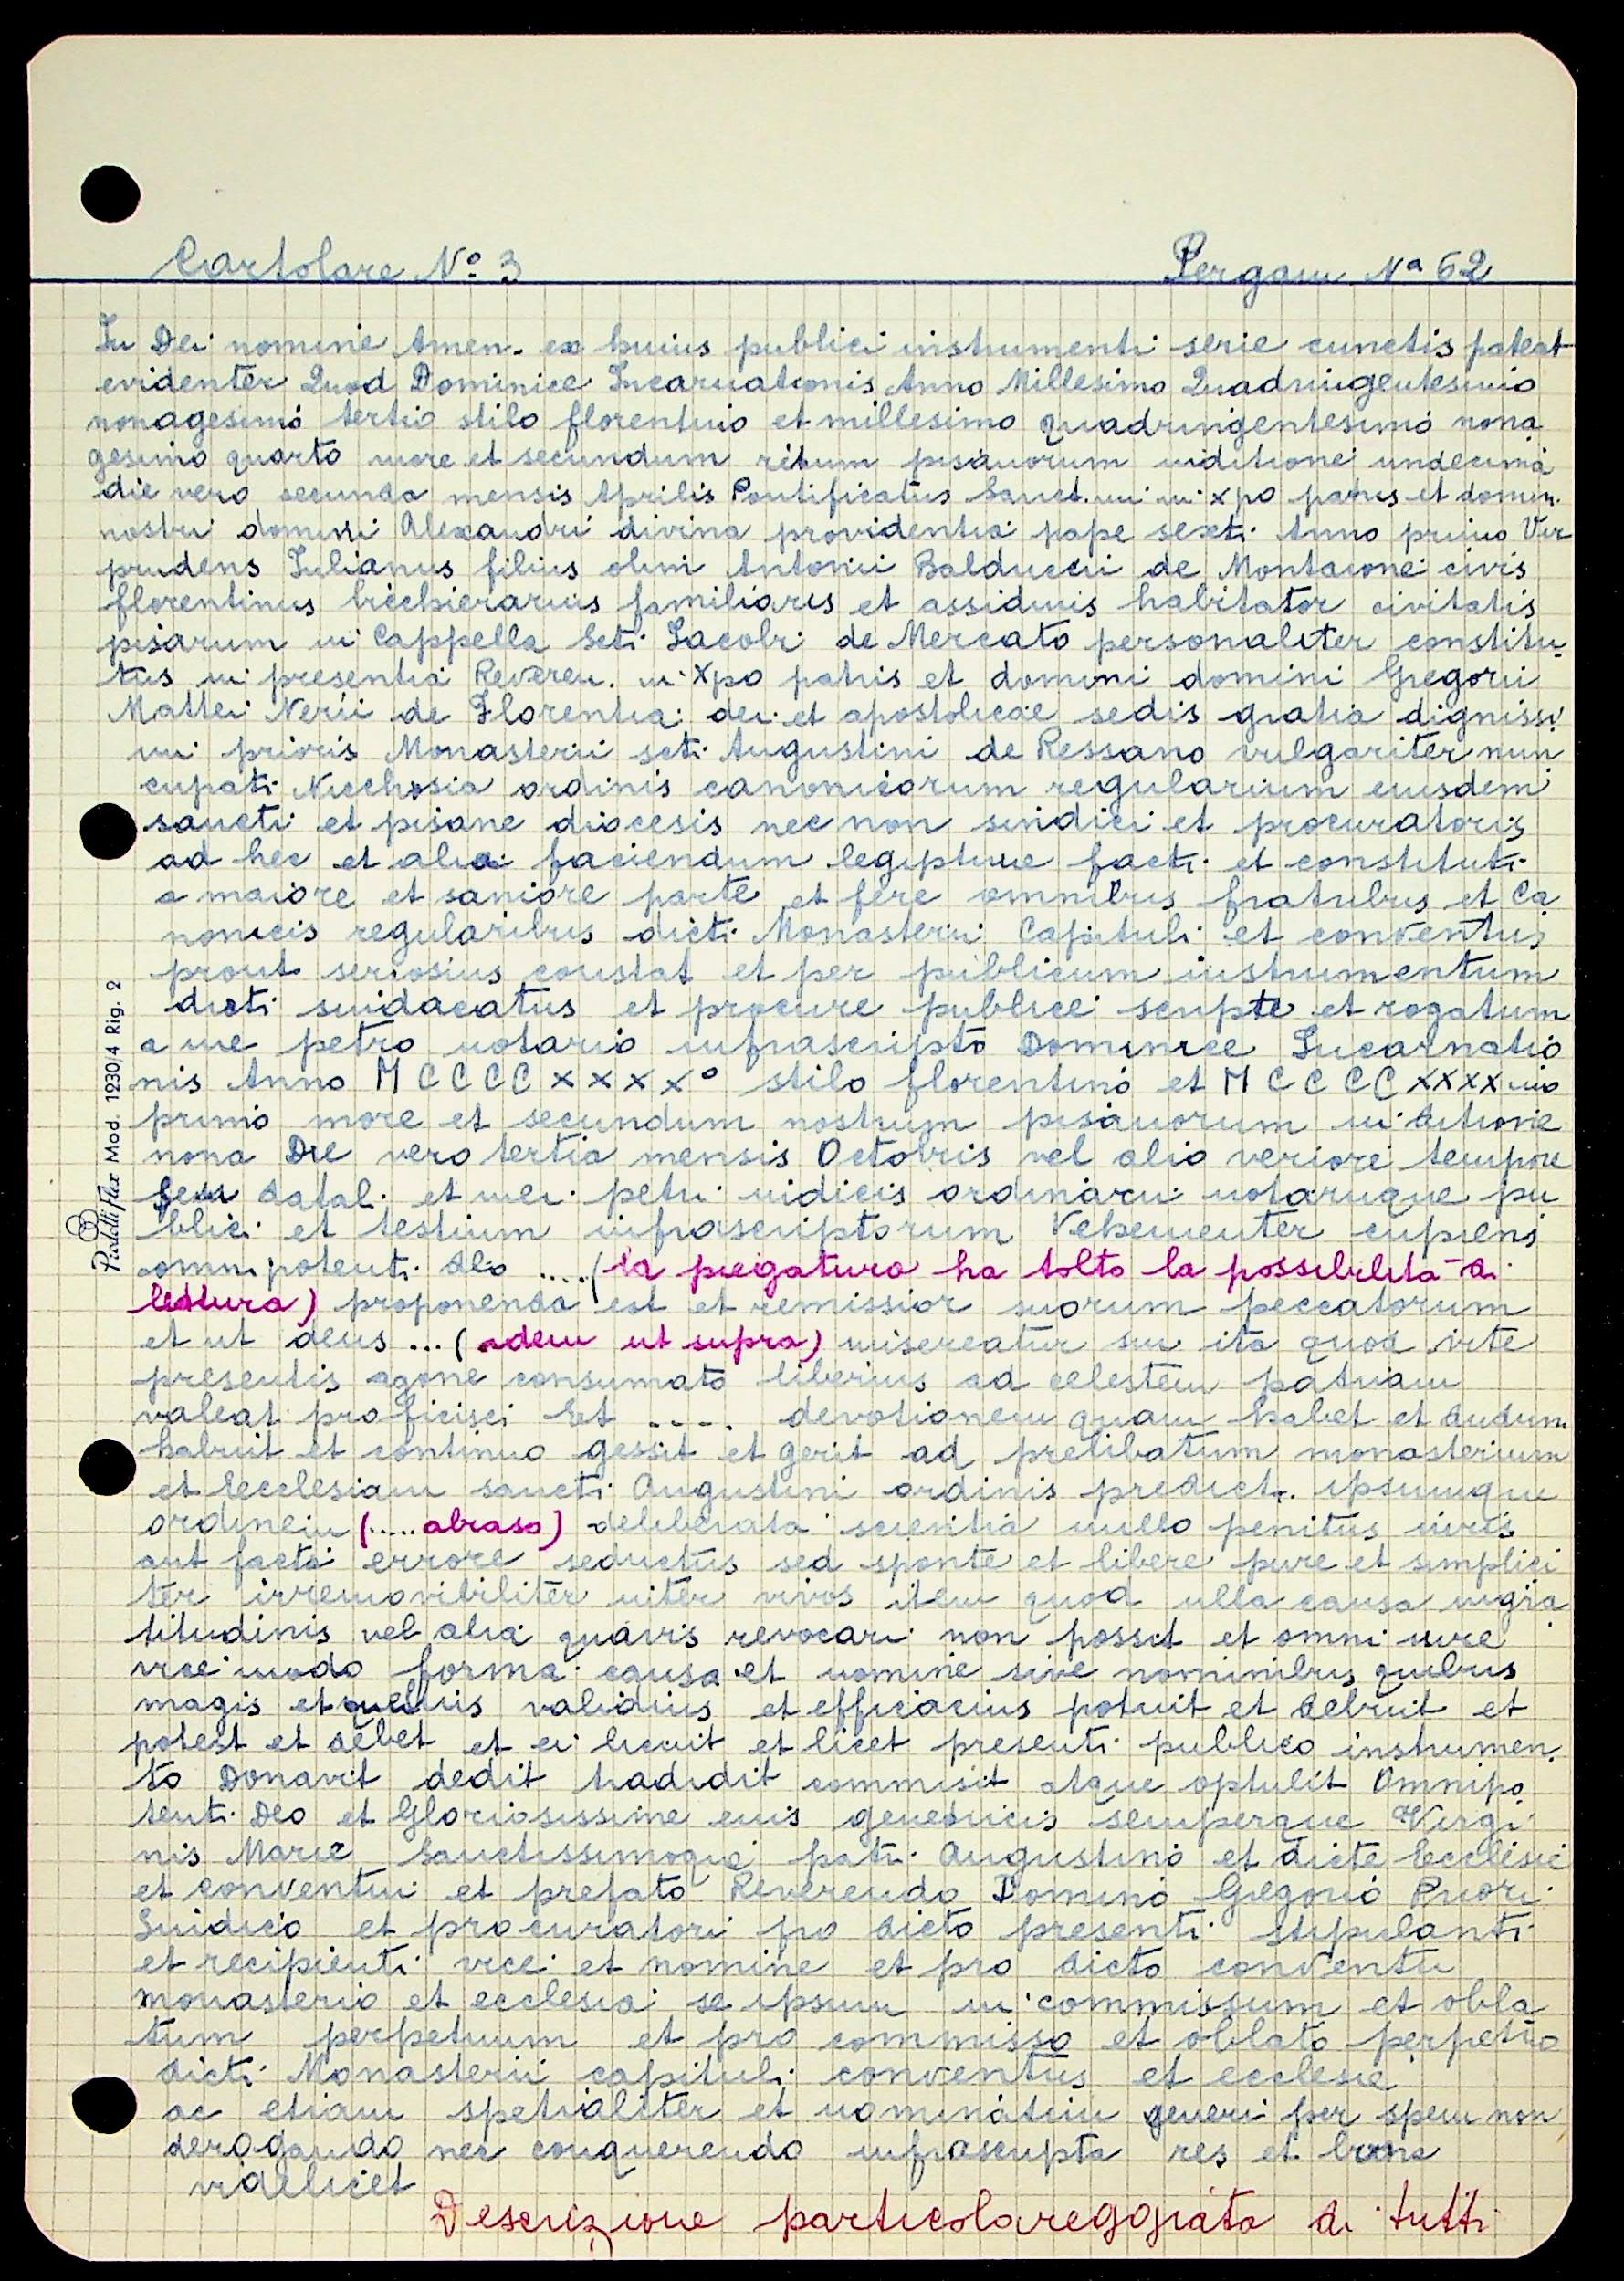 Cartolare N° 3
Pergam Nª 62
In Dei nomine Amen. ex huius publici instrumenti serie cunctis pateat
evidenter Quod Dominice Incarnationis Anno Millesimo Quadringentesimo
nonagesimo tertio stilo florentino et millesimo quadringentesimo nona
gesimo quarto more et secundum ritum pisanorum inditione undecima
die vero secunda mensis Aprilis Pontificatus Sanct.mi in xpo patris et domin.
nostri domini Alexandri divina providentia pape sexti Anno primo Vir
prudens Iulianus filius olim Antonii Balduccii de Montaione civis
florentinus bicchierarius familiaris et assiduus habitator civitatis
pisarum in Cappella Scti Iacobi de Mercato personaliter constitu
tus in presentia Reveren. in Xpo patris et domini domini Gregorii
Mattei Nerii de Florentia dei et apostolicae sedis gratia dignissi
mi prioris Monasterii scti Augustini de Ressano vulgariter nun
cupati Nicchosia ordinis canonicorum regularium eiusdem
sancti et pisane diocesis nec non sindici et procuratoris
ad hec et alia faciendum legiptime facti et constituti
a maiore et saniore parte et fere omnibus fratribus et Ca
nonicis regularibus dicti Monasterii Capituli et conventus
prout seriosius constat et per publicum instrumentum
dicti sindacatus et procure publice scripte et rogatum
a me petro notario infrascripto Dominice Incarnatio
nis Anno M C C C C x x x x° stilo florentino et M C C C C xxxx mo
primo more et secundum nostrum pisanorum in ditione
nona Die vero tertia mensis Octobris vel alio veriore tempore
seu datal. et mei petri iudicis ordinarii notariique pu
blici et testium infrascriptorum Vehementer cupiens
omnipotenti deo ....(la piegatura ha tolto la possibilità di
lettura) proponenda est et remissior suorum peccatorum
et ut deus ...(idem ut supra) misereatur sui ita quod vite
presentis agone consumato liberius ad celestem patriam
valeat proficisci Et .... devotionem quam habet et dudum
habuit et continuo gessit et gerit ad prelibatum monasterium
et Ecclesiam sancti Augustini ordinis predict. ipsumque
ordinem (..... abraso) deliberata scientia nullo penitus iuris
aut facti errore seductus sed sponte et libere pure et simplici
ter irremovibiliter inter vivos item quod ulla causa ingra
titudinis vel alia quavis revocari non possit et omni iure
vice modo forma causa et nomine sive nominibus quibus
magis et validius et efficacius potuit et debuit et
potest et debet et ei licuit et licet presenti publico instrumen.
to Donavit dedit tradidit commisit atque optulit Omnipo
tenti Deo et Gloriosissime eius genetricis semperque Virgi
nis Marie Sanctissimoque patri Augustino et dicte Ecclesie
et conventui et prefato Reverendo Domino Gregorio Priori
Sindico et procuratori pro dicto presenti stipulanti
et recipienti vice et nomine et pro dicto conventu
monasterio et ecclesia se ipsum in commissum et obla
tum perpetuum et pro commisso et oblato perpetuo
dicti Monasterii capituli conventus et ecclesie
ac etiam spetialiter et nominatim generi per spem non
derogando nec conquerendo infrascripta res et bona
videlicet
Descrizione particolareggiata di tutti
Pratelli flex Mod. 1230/4 Rig. 2